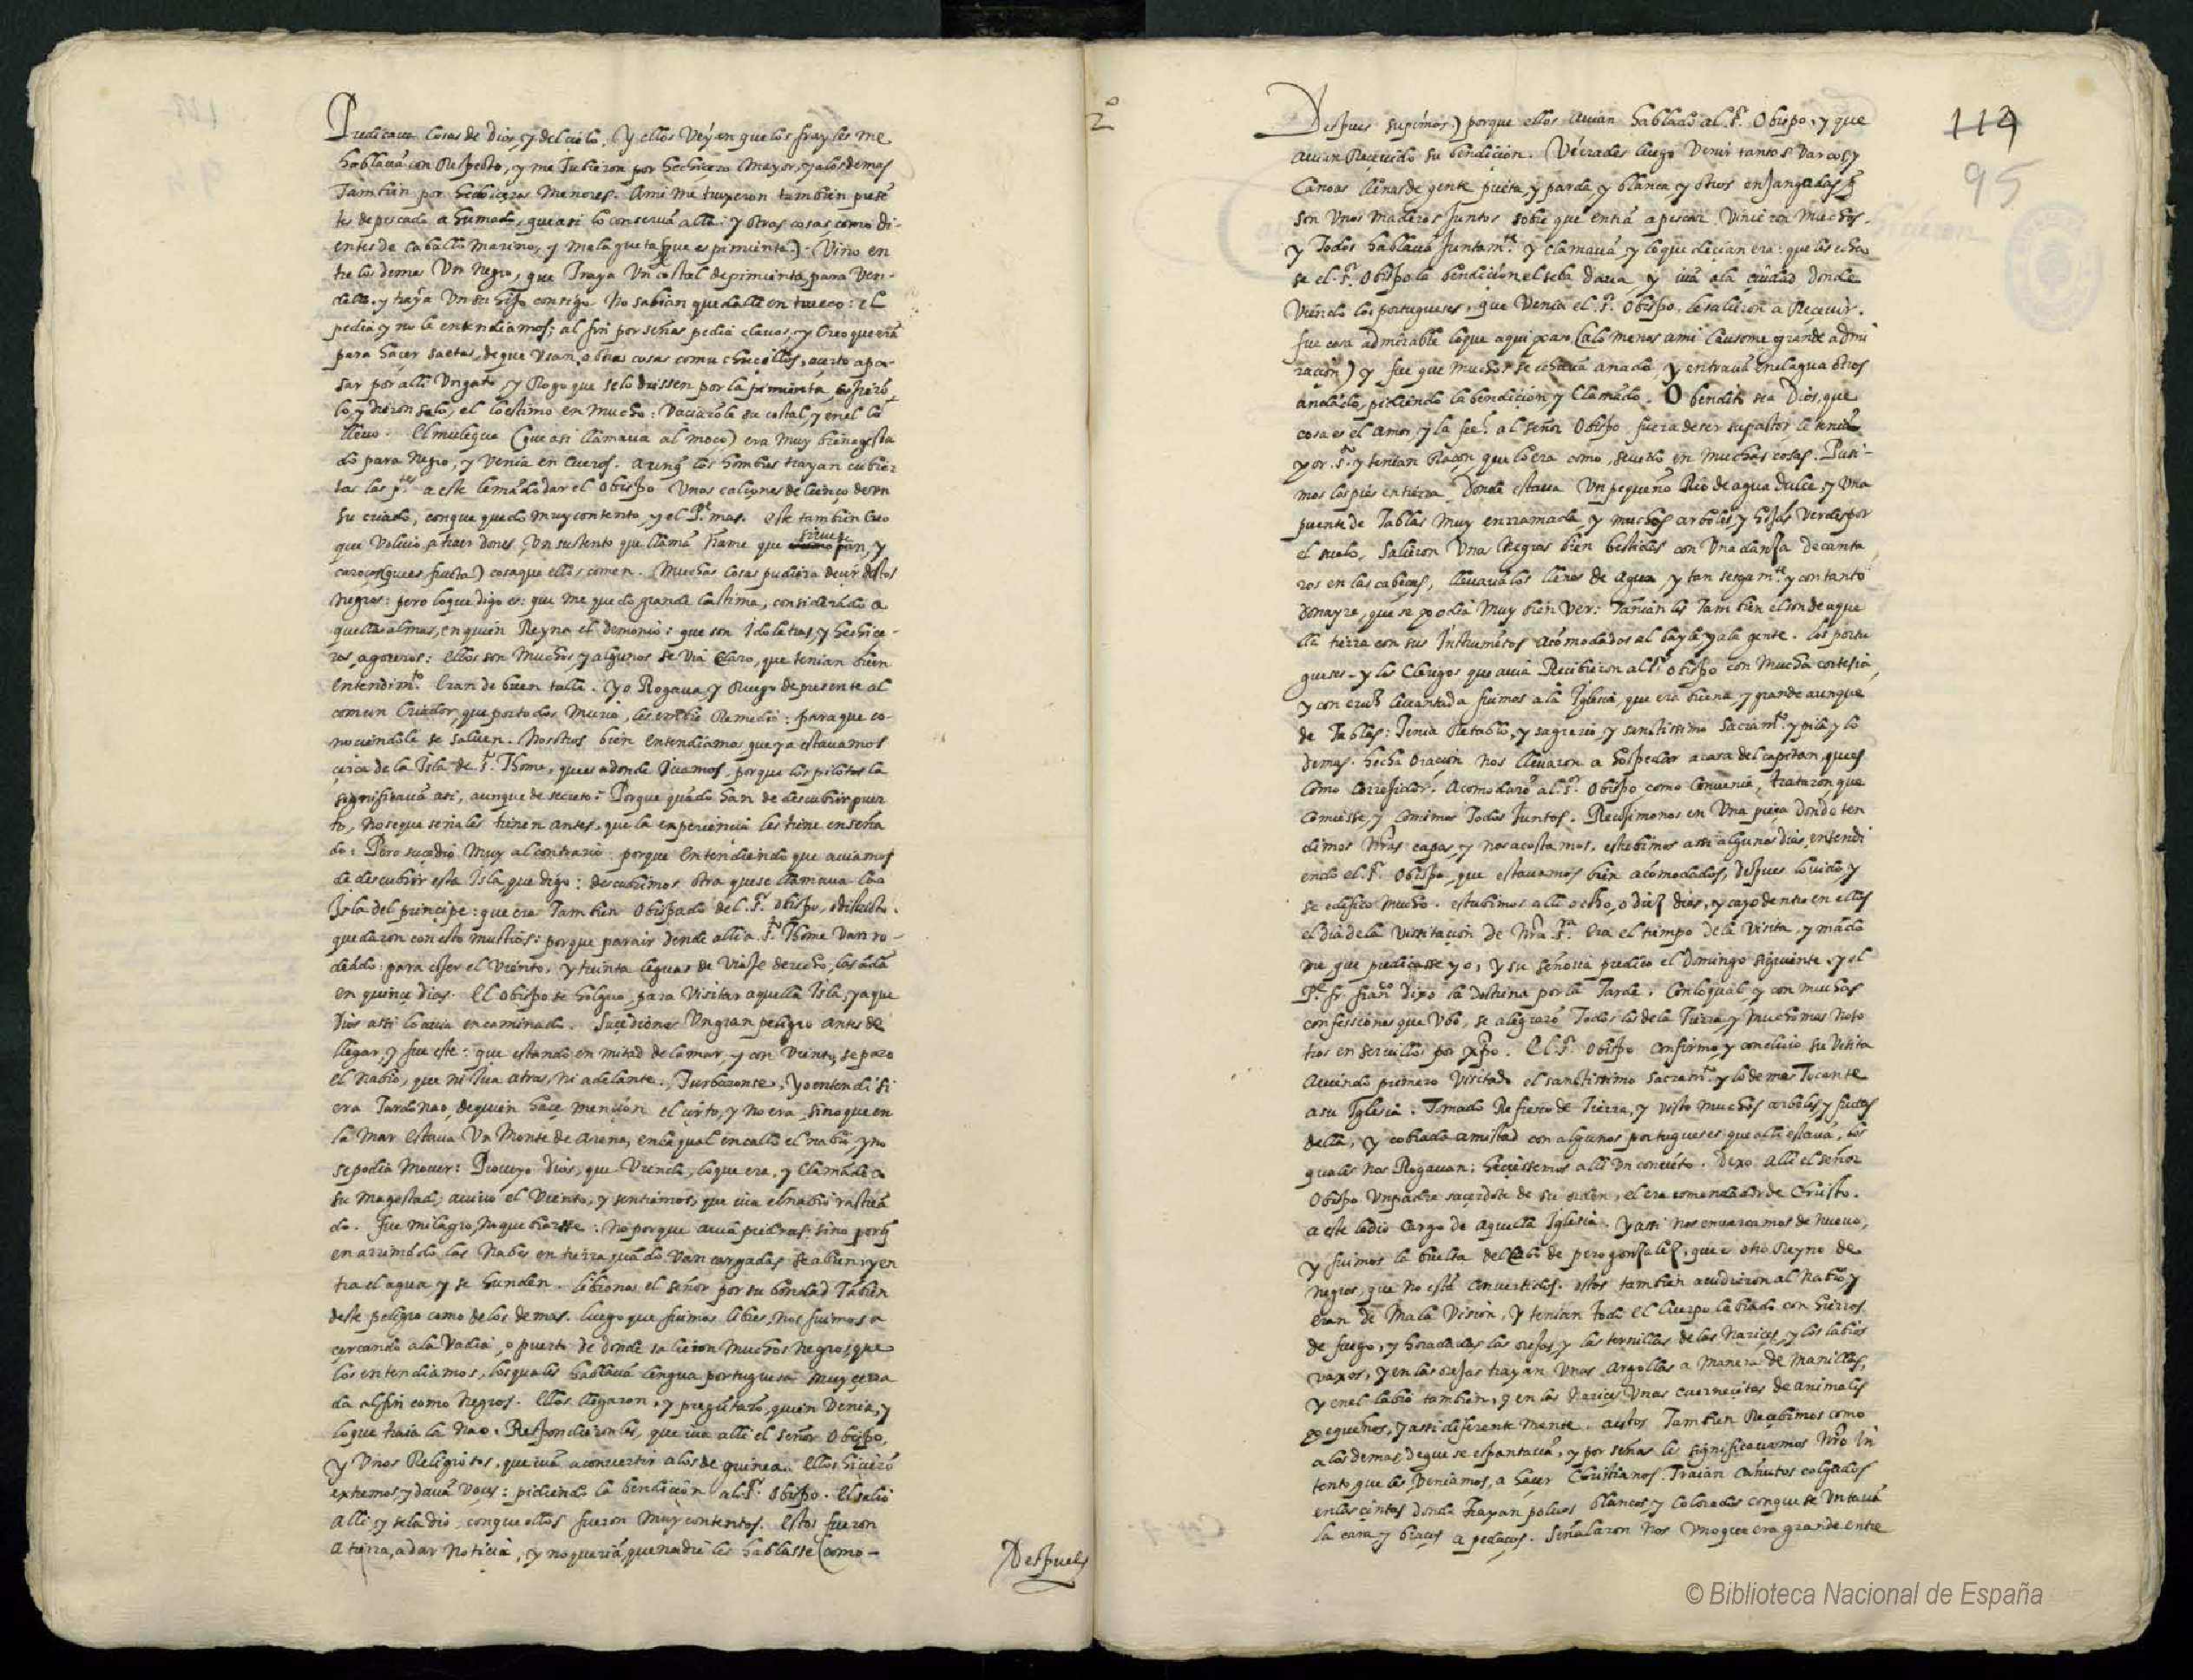 Predicaua cosas de Dios, y del cielo. Y ellos veyan que los frayles me
hablauā con Respecto, y me Tubieron por hechicero mayor, y a los demas
Tambien por hechiceros menores. Ami me truxeron tambien prese̅
tes de pescado ahumado, que asi lo conseruā alla: y otras cosas, como di-
entes de caballo marino, y melagueta (que es pimienta) Vino en
tre los demas Vn negro, que Traya Vn costal de pimienta, para Ven-
della, y traya Vn su hijo consigo. No sabian que dalle en trueco: el
pedia, y no le entendiamos; al fin por señas pedia clauos, y Creo que erā
para hacer saetas, de que Vsan, o otras cosas como chucillos, acerto a pa-
sar por alli Vn gato, y Rogo que se lo diessen por la pimienta,
lo, y dieronselo, el lo estimo en mucho: Vaciarōle su costal, y en el lo
lleuo. El mulegue (que asi llamaua al moço) era muy bien agesta
do para Negro, y Venia en Cueros. Aunq̅ los hombres trayan cubier
tas las p.tes a este le mādo dar el Obispo Vnos calçones de lienço de Vn
su criado, con que quedo muy contento, y el P.e mas. este tambien Creo
que Voluio, a traer dones, Vn sustento que llamā Ñame que
sirue de
pan, y
(que es fruta) cosa que ellos comen. Muchas cosas pudiera decir destos
Negros: pero lo que digo es: que me quedo grande lastima, considerādo a
quellas almas, en quien Reyna el demonio: que son Idolatras, y hechice-
ros, agoreros: ellos son muchos, y algunos se Via claro, que tenian buen
entendim.to Eran de buen talle. Yo Rogaua, y Ruego de presente al
comun Criador, que por todos muria, les embie Remedio: para que co-
nociendole se saluen. Nosotros bien entendiamos que ya estauamos
cerca de la Isla de S.t Thome, que es adonde Iuamos, porque los pilotos lo
significauā asi, aunque de secreto: Porque quādo han de descubrir puer
to, no se que señales tienen antes, que la experiencia les tiene enseña
do: Pero sucedio muy al contrario: porque entendiendo que auiamos
de descubrir esta Isla, que digo: descubrimos otra que se llamaua la
Isla del principe: que era Tambien Obispado del S.r obispo,
quedaron con esto mustios: porque para ir dende alli a S.t Thome Van ro-
deādo: para coger el Viento, y treinta leguas de Viaje derecho, las ādā
en quince dias. El obispo se holguo, para Visitar aquella Isla, ya que
Dios assi lo auia encaminado. Sucedionos Vn gran peligro antes de
llegar, y fue este: que estando en mitad de la mar, y con Viento, se paro
el nabio, que ni Iua atras, ni adelante. Turbaronse, Yo entendi si
era Tardanao, de quien hace mencion el, y no era, sino que en
la mar estaua Vn Monte de Arena, en la qual encallo el nabio, y no
se podia mouer: Proueyo Dios, que Viendo, lo que era, y clamādo a
su magestad; auiuo el Viento, y sentimos, que iua el nabio rastrā
do. fue milagro, no quebrarse: no porque auia piedras: sino porq̅
en arrimādo las nabes en tierra quādo Van cargadas se abren y en
tra el agua, y se hunden. Libronos el señor por su bondad Tābien
deste peligro como de los demas. Luego que fuimos libres, nos fuimos a
cercando a la Vadia, o puerto de donde salieron muchos negros, que
los entendiamos, los quales hablauā lengua portuguesa muy cerra
da al fin como negros. Ellos llegaron, y preguntarō, quien Venia, y
lo que traia la nao. Respondieronles, que iua alli el señor Obispo,
y Vnos Religiosos, que iuā a conuertir a los de guinea. ellos hicierō
extremos, y dauā voces: pidiendo la bendicion al S.r Obispo. El salio
alli y se la dio, con que ellos fueron muy contentos. Estos fueron
a tierra, a dar noticia, y no querian que nadie les hablasse (como-
Despues
2º
114
95
Despues supimos) porque ellos auian hablado al S.r Obispo, y que
auian Receuido su bendicion. Vierades luego Venir tantos Varcos, y
Canoas llenas de gente prieta, y parda, y blanca, y otros en Jangadas q̅
son Vnos maderos Juntos sobre que entrā a pescar. Vinieron muchos.
y Todos hablauā Juntam.te y clamauā, y lo que decian era: que les echa
se el S.r Obispo la bendicion, el se la daua y iuā a la ciudad donde
Viendo los portugueses, que Venia el S.r Obispo, le salieron a Receuir.
fue cosa admirable lo que aqui paso, (a lo menos a mi causome grande admi
racion) y fue que muchos se echauā a nado, y entrauā en el agua otros
andādo, pidiendo la bendicion, y Clamādo. O bendito sea Dios, que
cosa es el amor, y la fee: al señor Obispo fuera de ser su pastor le tenian
por S.r y tenian Raçon, que lo era como, secreto en muchas cosas. Pusi-
mos los pies en tierra Donde estaua Vn pequeño Rio de agua dulce, y Vna
puente de Tablas muy enrramada, y muchos arboles, y hojas Verdes por
el suelo, Salieron Vnas Negras bien bestidas con Vna dança de canta
ros en las cabeças, lleuauālos llenos de Agua, y tan sesgam.te y con tanto
donayre, que se podia muy bien Ver: Tañianles Tambien el son de aque
lla tierra con sus Instrumētos acomodados al bayle, y a la gente. Los portu
gueses, y los clerigos que auia Recibieron al S.r Obispo con mucha cortesia,
y con cruz leuantada fuimos a la Iglesia, que era buena, y grande aunque
de Tablas: Tenia Retablo, y sagrario, y sanctissimo sacram.to y pila, y lo
demas. hecha oracion nos lleuaron a hospedar a casa del capitan, que es
como corregidor. Acomodarō al S.r Obispo como conuenia, trataron que
comiesse, y comimos Todos Juntos. Recogimonos en Vna pieça donde ten
dimos Nr̅as capas, y nos acostamos. estubimos assi algunos dias, entendi
endo el S.r Obispo, que estauamos bien acomodados, despues lo vido, y
se edifico mucho. estubimos alli ocho, o diez dias, y cayo dentro en ellos
el dia de la Vissitacion de Nr̅a S.ra Era el tiempo de la visita, y mādo
me que predicasse yo, y su señoria predico el Domingo siguiente, y el
P.e fr. fran.co dixo la doctrina por la Tarde. Con lo qual, y con muchas
confessiones que Vbo, se alegrarō Todos los de la Tierra, y mucho mas noso
tros en seruillos por Xp̅o. El S.r Obispo confirmo, y concluio su Visita
Auiendo primero Visitado el sanctissimo sacram.to y lo de mas Tocante
a su Iglesia: Tomado Refresco de Tierra, y visto muchos arboles, y frutas
della, y cobrado amistad con algunos portugueses que alli estauā, los
quales nos Rogauan; hiciessemos alli Vn conuēto. Dexo alli el señor
Obispo Vn padre sacerdote de su orden, el era comendador de Christo.
a este le dio cargo de aquella Iglesia. Y assi nos envarcamos de nueuo,
y fuimos la buelta del Cabo de pero gonzalez, que es otro Reyno de
negros, que no estā conuertidos. estos tambien acudieron al nabio, y
eran de Mala Vision, y tenian todo el cuerpo labrado con hierros
de fuego, y horadadas las orejas, y las ternillas de las Narices, y los labios
vaxos, y en las orejas trayan Vnas Argollas a manera de manillas,
y en el labio tambien, y en las narices Vnos cuernecitos de animales
pequeños, y assi diferentemente. a estos Tambien Recibimos como
a los demas, de que se espantauā, y por señas les significauamos Nr̅o In
tento, que les Veniamos, a hacer Christianos. Traian cañutos colgados
en las cintas donde trayan poluos blancos, y colorados con que se Vntauā
la cara, y braços a pedaços. Señalaron nos Vno que era grande entre
© Biblioteca Nacional de España